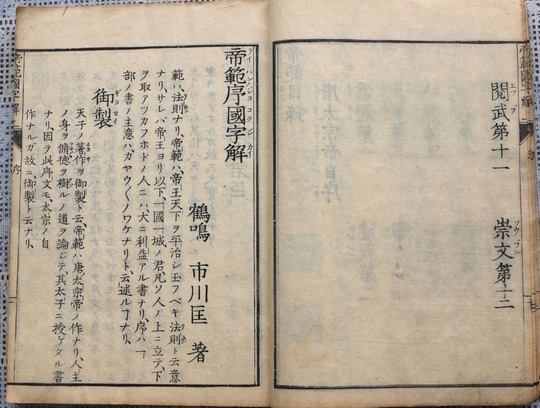 閲武第十一
エツブ
崇文第十二
ソウブン
帝範序國字解
テイハンジヨコクジカイ
鶴鳴 市川匡 著
範ハ法則ナリ、帝範ハ帝王天下ヲ平治シ玉フベキ法則ト云意
ナリ、サレバ帝王ヨリ以下、一國一城ノ君凡ソ人ノ上ニ立テ、下
ヲ取アツカフホドノ人ニハ大ニ利益アル書ナリ、序ハ一
部ノ書ノ主意ハガヤウ〱ノワケナリト、云述ルヿナリ、
御製
ギヨセイ
天子ノ著作ヲ御製ト云、帝範ハ唐太宗帝ノ作ナリ、人主
ノ身ヲ脩德ヲ樹ルノ道ヲ論ジテ、其太子ニ授ケタル書
ナリ、因テ此序文モ、太宗ノ自
作ナルガ故ニ、御製ト云ナリ、
序